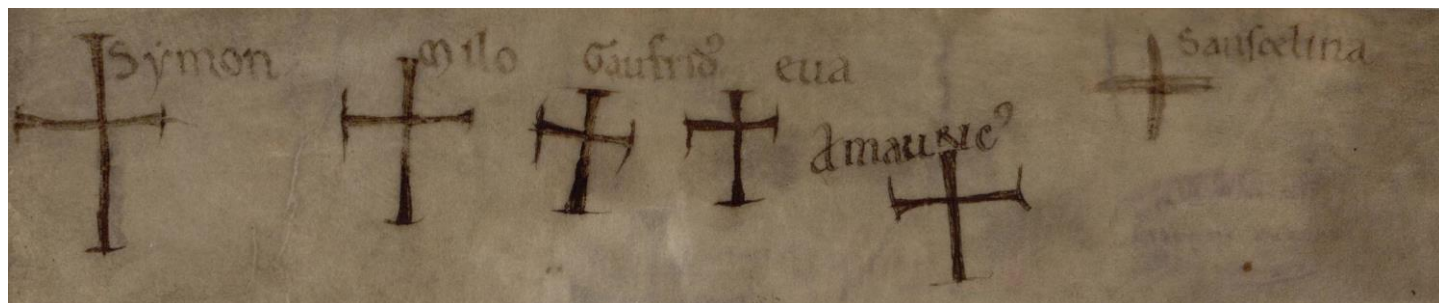 Symon Milo Gaufridꝰ eua Sanscelina
Amauricꝰ